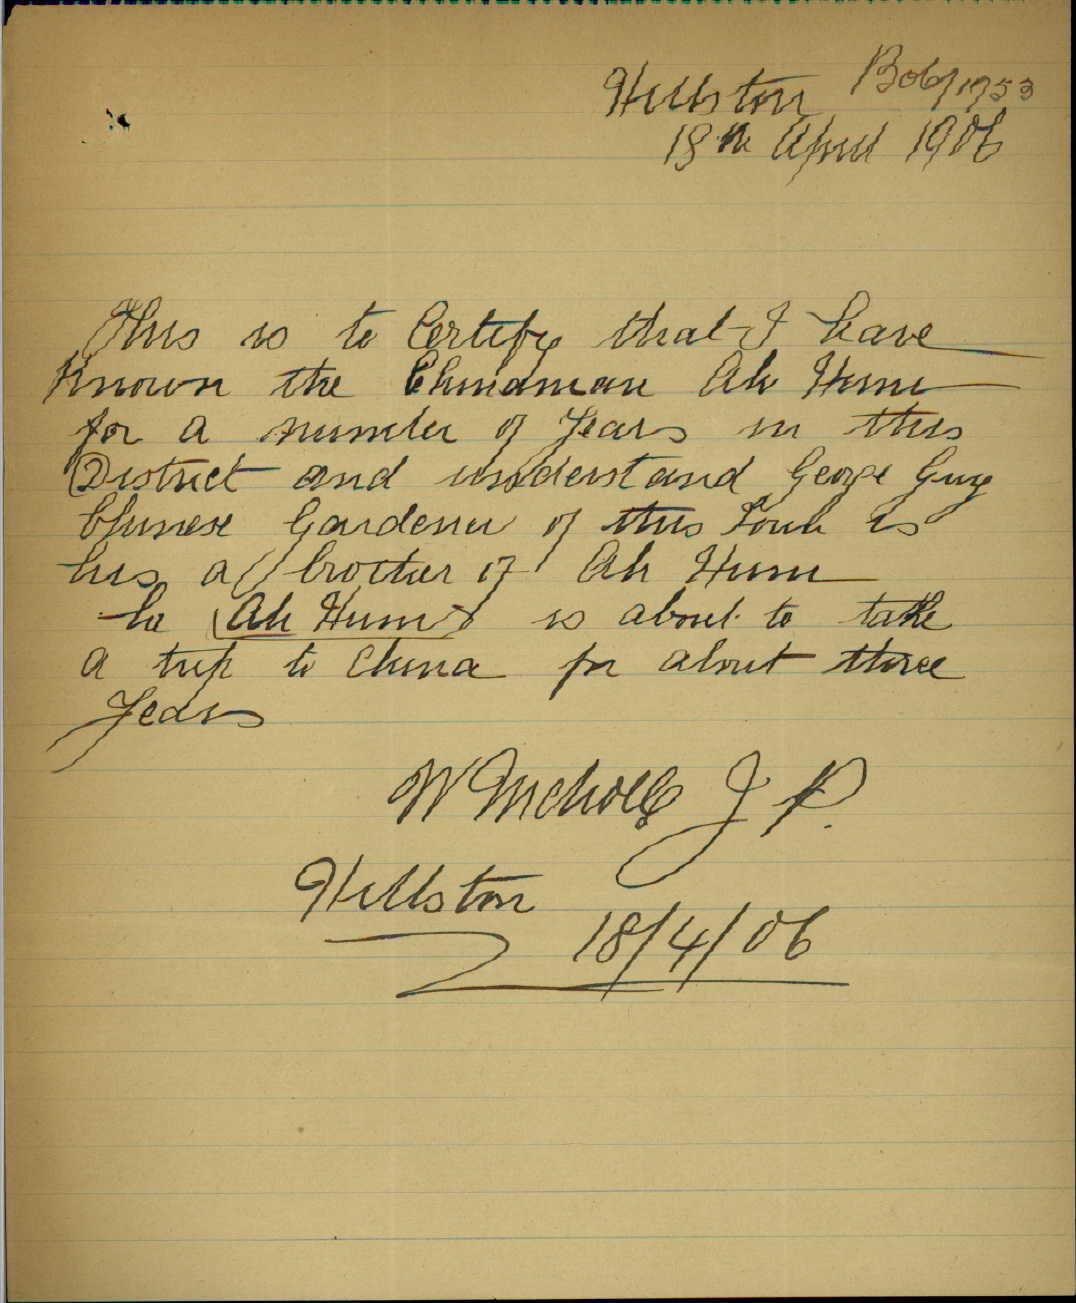 Hillston B06/1753
18th April 1906
This is to Certify that I have
Known the Chinaman Ah Hum
for a number of Years in this
District and understand George Guy
Chinese Gardener of this Town is
his a brother of Ah Hum
he (Ah Hum) is about to take
a trip to China for about three
Years
W Nicholls J P.
Hillston
18/4/06